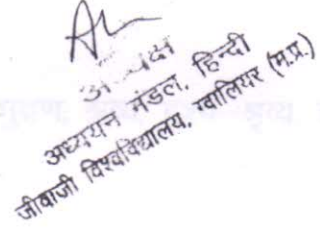 अध्यक्ष
अध्ययन मंडल, हिन्दी
जीवाजी विश्वविद्यालय, ग्वालियर (म.प्र.)